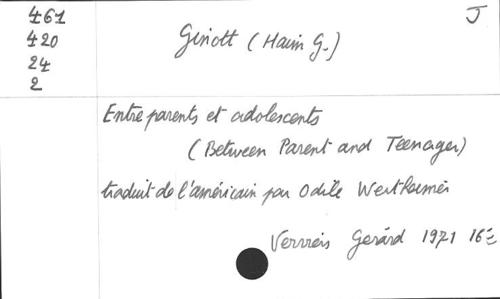 461
420
24
2
J
Ginott (Haim G.)
Entre parents et adolescents
(Between Parent and Teenager)
traduit de l'américain par Odile Wertheimer
Verviers Gerárd 1971 16=